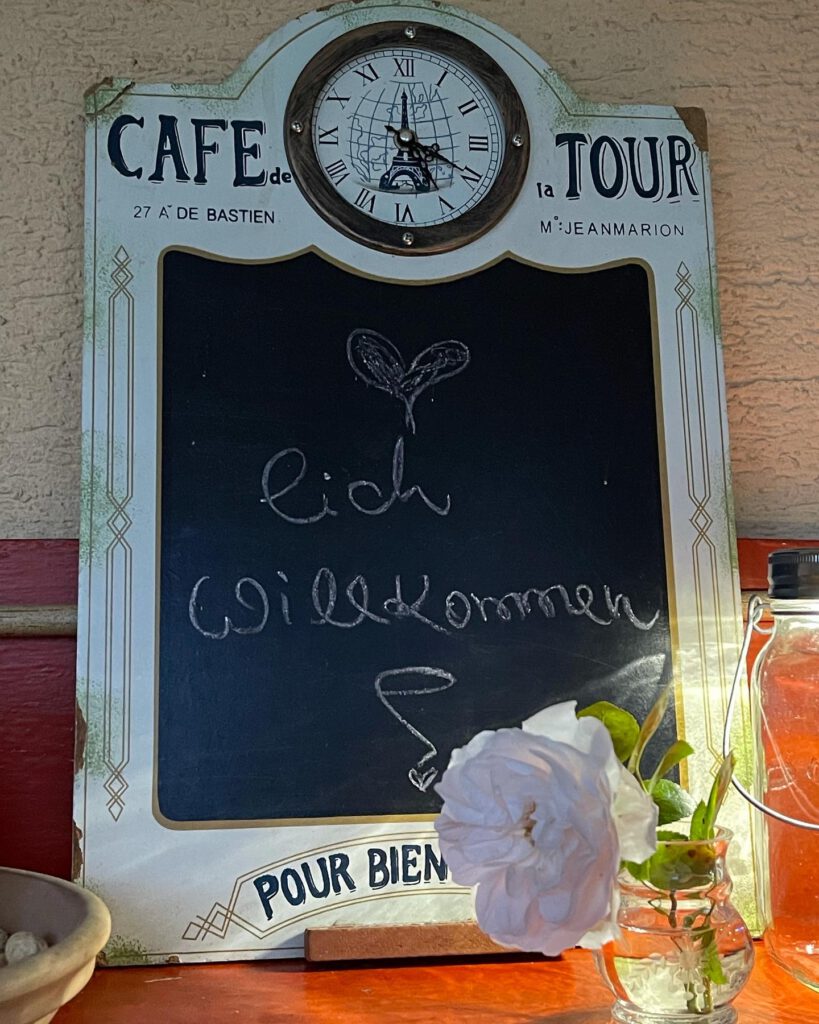 XII I II III IV V VI VII VIII IX X XI
CAFE de la TOUR
27 Aˇ DE BASTIEN
M°: JEANMARION
lich
Willkommen
POUR BIEN